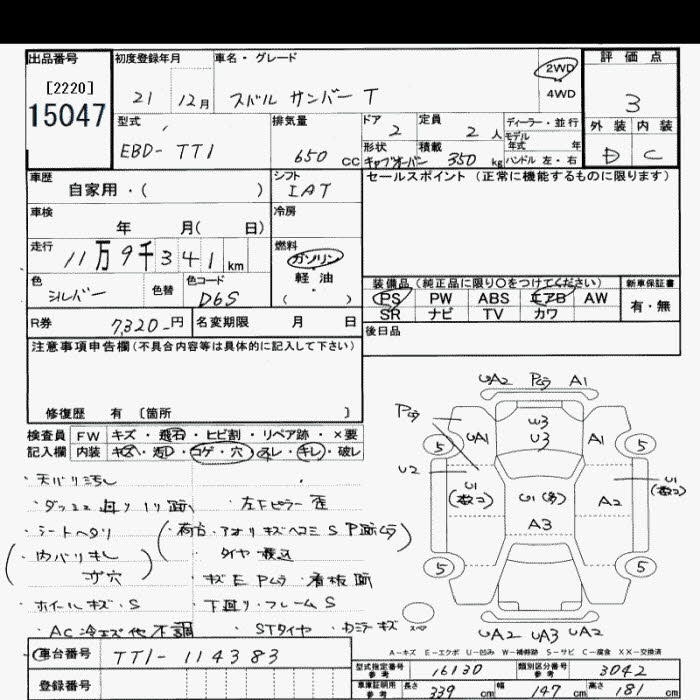 出品番号 初度登録年月 車名・グレード 評価点
[2220] 2WD
15047 21 12月 スバル サンバー T 4WD 3
型式 排気量 ドア 2 定員 2 人 ディーラー・並行 外装 内装
モデル年式 年
EBD-TT1 650 CC 形状 キャブオーバン 積載 350 kg ハンドル 左・右 D C
車歴 シフト セールスポイント (正常に機能するものに限ります)
自家用・( ) IAT
車検 冷房
年 月( 日)
走行 燃料
11万9千341km ガソリン
軽・油
色 色替 色コード ( )
シルバー D6S
装備品 (純正品に限り○をつけてください) 新車保証書
PS PW ABS エアB AW 有・無
SR ナビ TV カワ
R券 7,320-円 名変期限 月 日
後日品
注意事項申告欄(不具合内容等は具体的に記入して下さい)
修復歴 有 〔箇所 〕
検査員 FW キズ・飛石・ヒビ割・リペア跡・×要
記入欄 内装 キズ・コゲ・穴・スレ・キレ・破レ
・天バリ汚れ
・左下ピラー歪
・シートヘタリ
・荷台・アオリキズヘコミ S P跡ムラ
・内バリキレ
・タイヤ積込
穴
・キズ E Pムラ・看板跡
・ホイールキズ・S ・下廻り・フレームS
・AC冷エズ他不調 STタイヤ
UA2 Pムラ A1
Pムラ
W3
U3
5 UA1 A1 5
U2 U1 (数コ) U1(多) A2 U1 (数コ)
A3
5 5
スペア
UA2 UA3 UA2
A-キズ E-エクボ U-凹み W-補修跡 S-サビ C-腐食 XX-交換済
車台番号 TT1-114383
登録番号
型式指定番号 参考 16130 類別区分番号 参考 3042
車庫証明用 参考 長さ 339 cm 幅 147 cm 高さ 181 cm